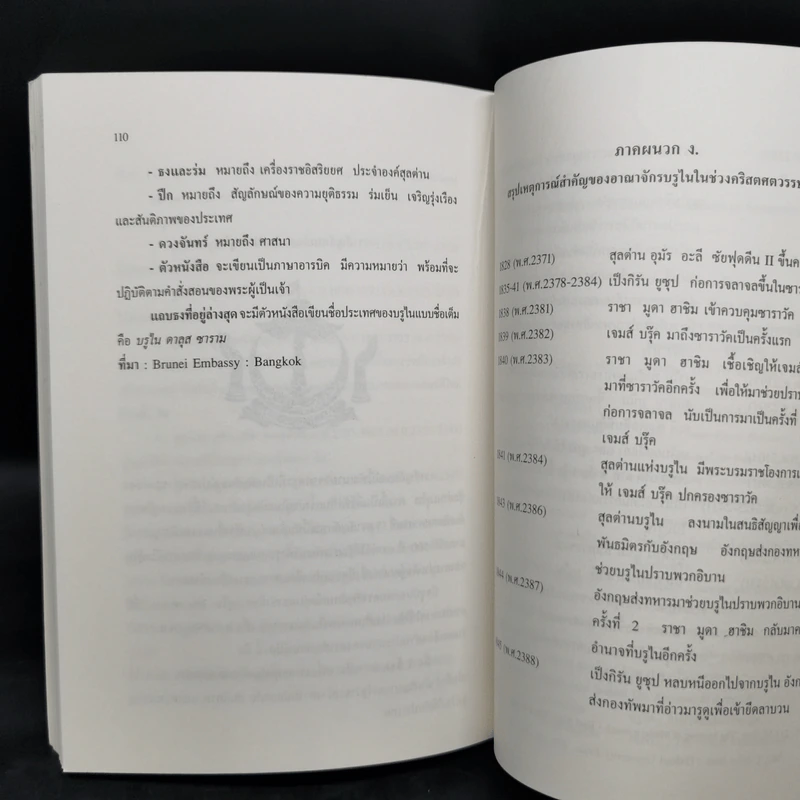 110
- ธงและร่ม หมายถึง เครื่องราชอิสริยยศ ประจำองค์สุลต่าน
- ปีก หมายถึง สัญลักษณ์ของความยุติธรรม ร่มเย็น เจริญรุ่งเรือง
และสันติภาพของประเทศ
- ดวงจันทร์ หมายถึง ศาสนา
- ตัวหนังสือ จะเขียนเป็นภาษาอารบิค มีความหมายว่า พร้อมที่จะ
ปฏิบัติตามคำสั่งสอนของพระผู้เป็นเจ้า
แถบธงที่อยู่ล่างสุด จะมีตัวหนังสือเขียนชื่อประเทศของบรูไนแบบชื่อเต็ม
คือ บรูไน ดาลุส ซาราม
ที่มา : Brunei Embassy : Bangkok
ภาคผนวก ง.
สรุปเหตุการณ์สำคัญของอาณาจักรบรูไนในช่วงคริสตศตวรรษ
1828 (พ.ศ.2371) สุลต่าน อุมัร อะลี ซัยฟุดดีน II ขึ้น
1835-41 (พ.ศ.2378-2384) เป็งกิรัน ยูซุป ก่อการจลาจลขึ้นในซา
1838 (พ.ศ.2381) ราชา มูดา ฮาชิม เข้าควบคุมซาราวัค
1839 (พ.ศ.2382) เจมส์ บรุ๊ค มาถึงซาราวัคเป็นครั้งแรก
1840 (พ.ศ.2383) ราชา มูดา ฮาชิม เชื้อเชิญให้เจมส์
มาที่ซาราวัคอีกครั้ง เพื่อให้มาช่วยปราบ
ก่อการจลาจล นับเป็นการมาเป็นครั้งที่
เจมส์ บรุ๊ค
1841 (พ.ศ.2384) สุลต่านแห่งบรูไน มีพระบรมราชโองการ
ให้ เจมส์ บรุ๊ค ปกครองซาราวัค
843 (พ.ศ.2386) สุลต่านบรูไน ลงนามในสนธิสัญญาเพื่อ
พันธมิตรกับอังกฤษ อังกฤษส่งกองทห
ช่วยบรูไนปราบพวกอิบาน
844 (พ.ศ.2387) อังกฤษส่งทหารมาช่วยบรูไนปราบพวกอิบาน
ครั้งที่ 2 ราชา มูดา ฮาชิม กลับมาค
อำนาจที่บรูไนอีกครั้ง
(พ.ศ.2388) เป็งกิรัน ยูซุป หลบหนีออกไปจากบรูไน อังก
ส่งกองทัพมาที่อ่าวมารูดูเพื่อเข้ายึดลาบวน